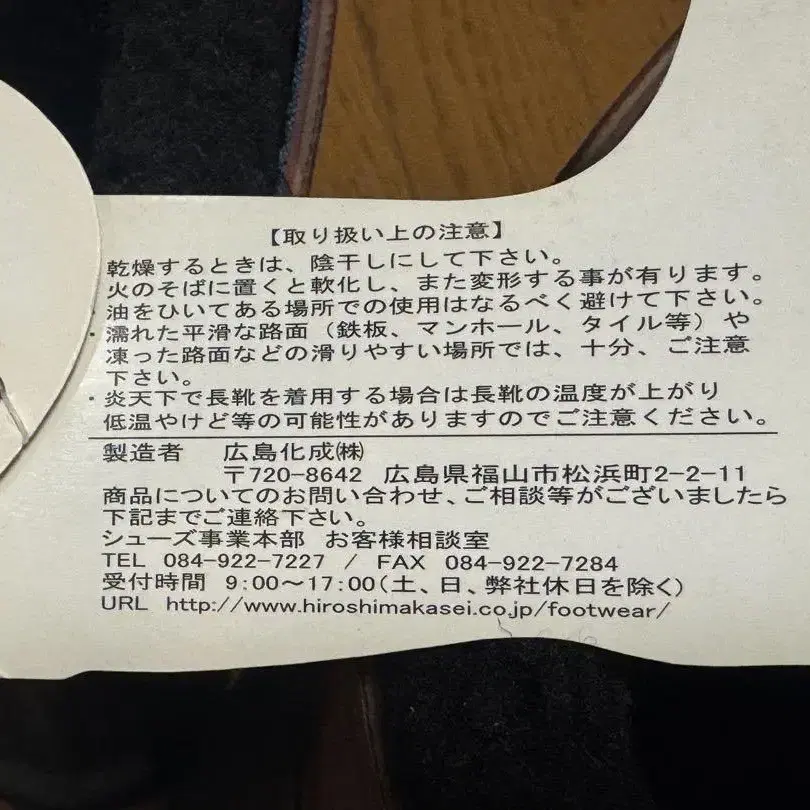 【取り扱い上の注意】
乾燥するときは、陰干しにして下さい。
火のそばに置くと軟化し、また変形する事が有ります。
・油をひいてある場所での使用はなるべく避けて下さい。
・濡れた平滑な路面（鉄板、マンホール、タイル等）や
凍った路面などの滑りやすい場所では、十分、ご注意
下さい。
・炎天下で長靴を着用する場合は長靴の温度が上がり
低温やけど等の可能性がありますのでご注意ください。
製造者　広島化成㈱
〒720-8642　広島県福山市松浜町2-2-11
商品についてのお問い合わせ、ご相談等がございましたら
下記までご連絡下さい。
シューズ事業本部　お客様相談室
TEL 084-922-7227 / FAX 084-922-7284
受付時間 9:00～17:00（土、日、弊社休日を除く）
URL http://www.hiroshimakasei.co.jp/footwear/